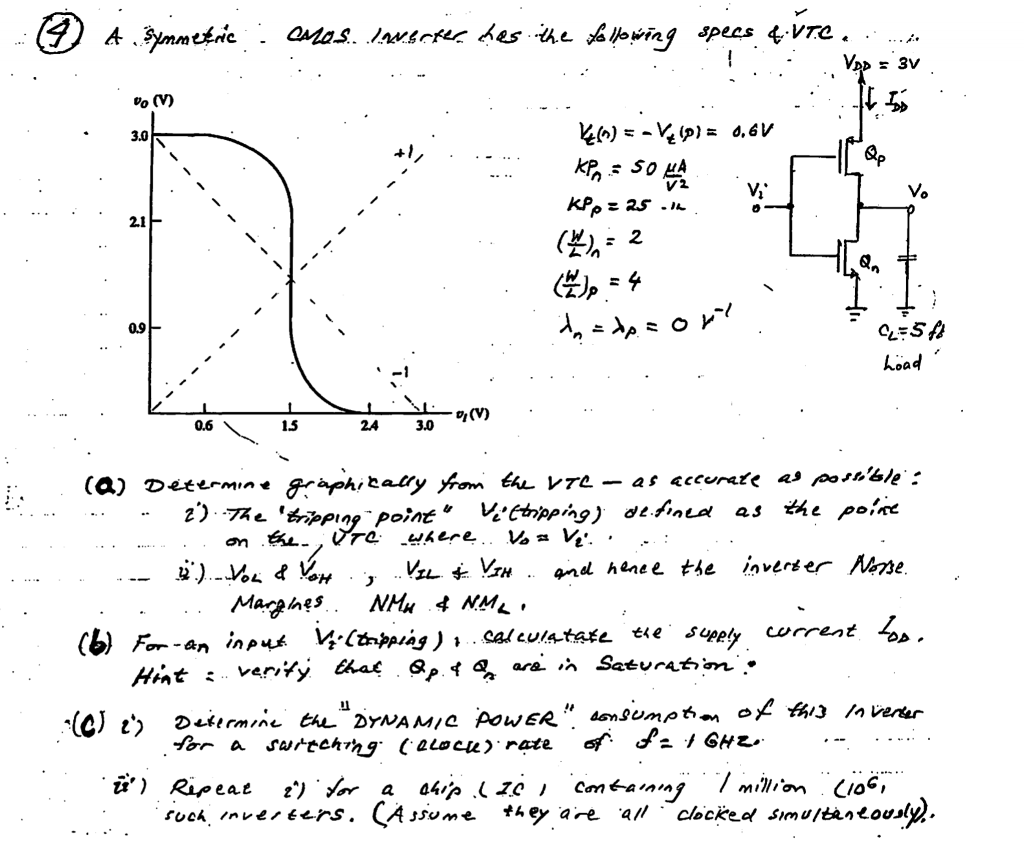 (4) A Symmetric CMOS Inverter has the following specs & VTC.
VDD = 3V
IDD
vO (V)
3.0
2.1
0.9
+1
-1
0.6 1.5 2.4 3.0 vI (V)
Vt(n) = - Vt(p) = 0.6V
KPn = 50 μA/V2
KPp = 25 -"-
(W/L)n = 2
(W/L)p = 4
λn = λp = 0 V-1
Qp
Vi
Vo
Qn
CL=5 ff
Load
(a) Determine graphically from the VTC - as accurate as possible :
i) The "tripping point" Vi(tripping) defined as the point
on the VTC where Vo = Vi.
ii) VOL & VOH , VIL & VIH and hence the inverter Noise
Margines NMH & NML.
(b) For an input Vi(tripping), calculatate the supply current IDD.
Hint : verify that Qp & Qn are in Saturation.
(C) i) Determine the "DYNAMIC POWER" consumption of this Inverter
for a switching (clock) rate of f = 1 GHZ.
ii) Repeat i) for a chip (IC) containing 1 million (106)
such inverters. (Assume they are all clocked simultaneously).